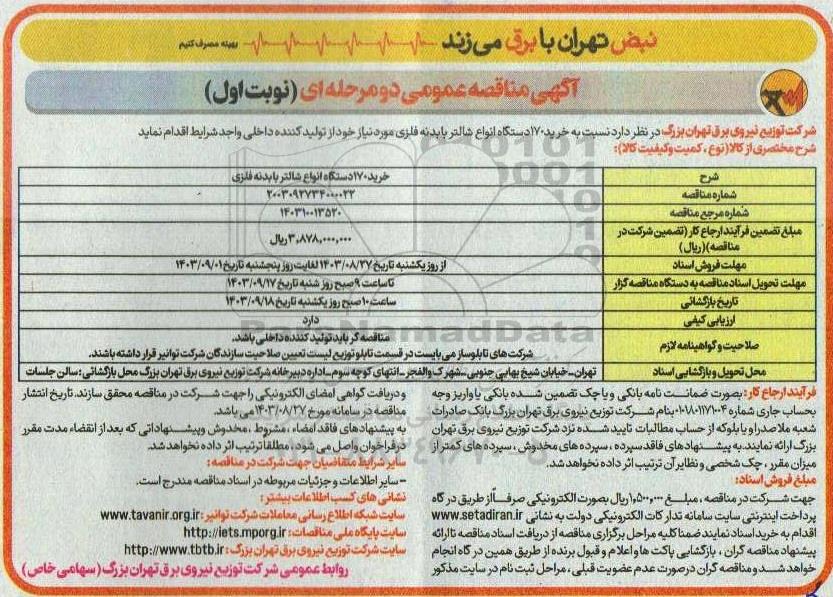 نبض تهران با برق می زند
بهینه مصرف کنیم
آگهی مناقصه عمومی دو مرحله ای (نوبت اول)
شرکت توزیع نیروی برق تهران بزرگ در نظر دارد نسبت به خرید ۱۷۰ دستگاه انواع شالتر با بدنه فلزی مورد نیاز خود از تولید کننده داخلی واجد شرایط اقدام نماید
شرح مختصری از کالا (نوع ، کمیت و کیفیت کالا):
شرح خرید ۱۷۰ دستگاه انواع شالتر با بدنه فلزی
شماره مناقصه ۲۰۰۳۰۹۲۷۳۴۰۰۰۰۲۲
شماره مرجع مناقصه ۱۴۰۳۱۰۰۱۳۵۲۰
مبلغ تضمین فرآیند ارجاع کار (تضمین شرکت در
مناقصه)(ریال) ۳,۸۷۸,۰۰۰,۰۰۰ ریال
مهلت فروش اسناد از روز یکشنبه تاریخ ۱۴۰۳/۰۸/۲۷ لغایت روز پنجشنبه تاریخ ۱۴۰۳/۰۹/۰۱
مهلت تحویل اسناد مناقصه به دستگاه مناقصه گزار تا ساعت ۹ صبح روز شنبه تاریخ ۱۴۰۳/۰۹/۱۷
تاریخ بازگشائی ساعت ۱۰ صبح روز یکشنبه تاریخ ۱۴۰۳/۰۹/۱۸
ارزیابی کیفی دارد
صلاحیت و گواهینامه لازم مناقصه گر باید تولید کننده داخلی باشد.
شرکت های تابلوساز می بایست در قسمت تابلو توزیع لیست تعیین صلاحیت سازندگان شرکت توانیر قرار داشته باشند.
محل تحویل و بازگشایی اسناد تهران-خیابان شیخ بهایی جنوبی-شهرک والفجر-انتهای کوچه سوم-اداره دبیرخانه شرکت توزیع نیروی برق تهران بزرگ محل بازگشائی: سالن جلسات
فرآیند ارجاع کار: بصورت ضمانت نامه بانکی و یا چک تضمین شده بانکی یا واریز وجه
بحساب جاری شماره ۰۱۰۱۸۰۱۱۷۱۰۰۴ بنام شرکت توزیع نیروی برق تهران بزرگ بانک صادرات
شعبه ملاصدرا و یا بلوکه از حساب مطالبات تایید شده نزد شرکت توزیع نیروی برق تهران
بزرگ ارائه نمایند. به پیشنهادهای فاقد سپرده ، سپرده های مخدوش ، سپرده های کمتر از
میزان مقرر ، چک شخصی و نظایر آن ترتیب اثر داده نخواهد شد.
مبلغ فروش اسناد:
جهت شرکت در مناقصه ، مبلغ ۱,۵۰۰,۰۰۰ ریال بصورت الکترونیکی صرفاً از طریق درگاه
پرداخت اینترنتی سایت سامانه تدارکات الکترونیکی دولت به نشانی www.setadiran.ir
اقدام به خرید اسناد نمایند ضمنا کلیه مراحل برگزاری مناقصه از دریافت اسناد مناقصه تا ارائه
پیشنهاد مناقصه گران ، بازگشایی پاکت ها و اعلام و قبول برنده از طریق همین درگاه انجام
خواهد شد و مناقصه گران در صورت عدم عضویت قبلی ، مراحل ثبت نام در سایت مذکور
و دریافت گواهی امضای الکترونیکی را جهت شرکت در مناقصه محقق سازند. تاریخ انتشار
مناقصه در سامانه مورخ ۱۴۰۳/۰۸/۲۷ می باشد.
به پیشنهادهای فاقد امضاء ، مشروط ، مخدوش و پیشنهاداتی که بعد از انقضاء مدت مقرر
در فراخوان واصل می شود ، مطلقا ترتیب اثر داده نخواهد شد.
سایر شرایط متقاضیان جهت شرکت در مناقصه:
- سایر اطلاعات و جزئیات مربوطه در اسناد مناقصه مندرج است.
نشانی های کسب اطلاعات بیشتر:
سایت شبکه اطلاع رسانی معاملات شرکت توانیر: www.tavanir.org.ir
سایت پایگاه ملی مناقصات: http://iets.mporg.ir
سایت شرکت توزیع نیروی برق تهران بزرگ: http://www.tbtb.ir
روابط عمومی شرکت توزیع نیروی برق تهران بزرگ (سهامی خاص)
ParsNamadData